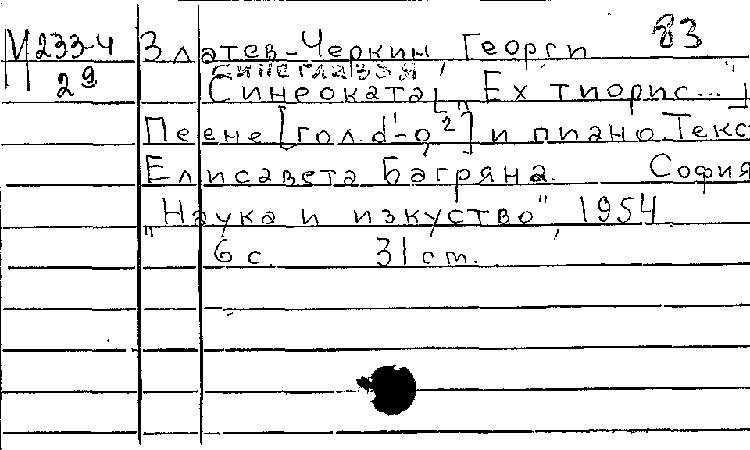 М 233-4 Златев-Черкин, Георги 83
29 синеглазая
Синеоката[, „Ех тиорис..."]
Пеене [гол. d'-g²] и пиано. Текс
Елисавета Багряна. София
„Наука и изкуство", 1954
6 с. 31 cm.